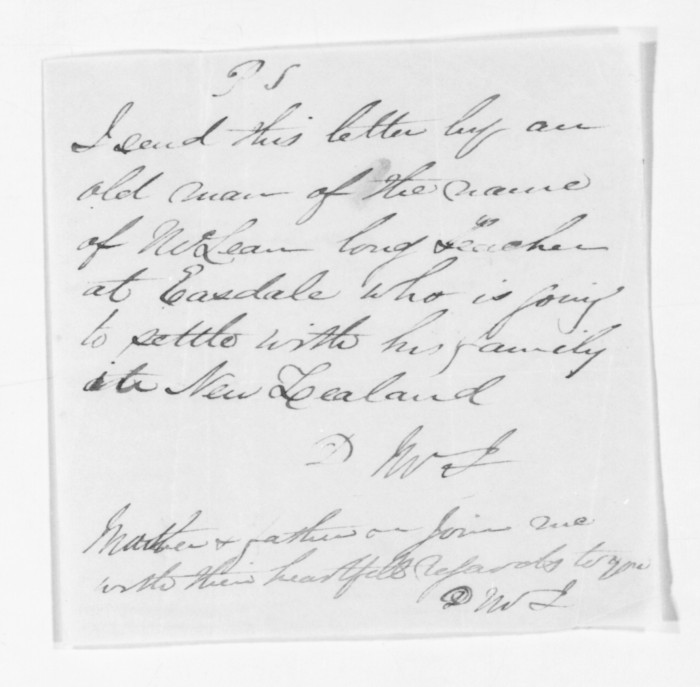 P S
I send this letter by an
old man of the name
of McLean long teacher
at Easdale who is going
to settle with his family
in New Zealand
D McL
Mother & father in Join me
with their heartfelt regards to you
D McL